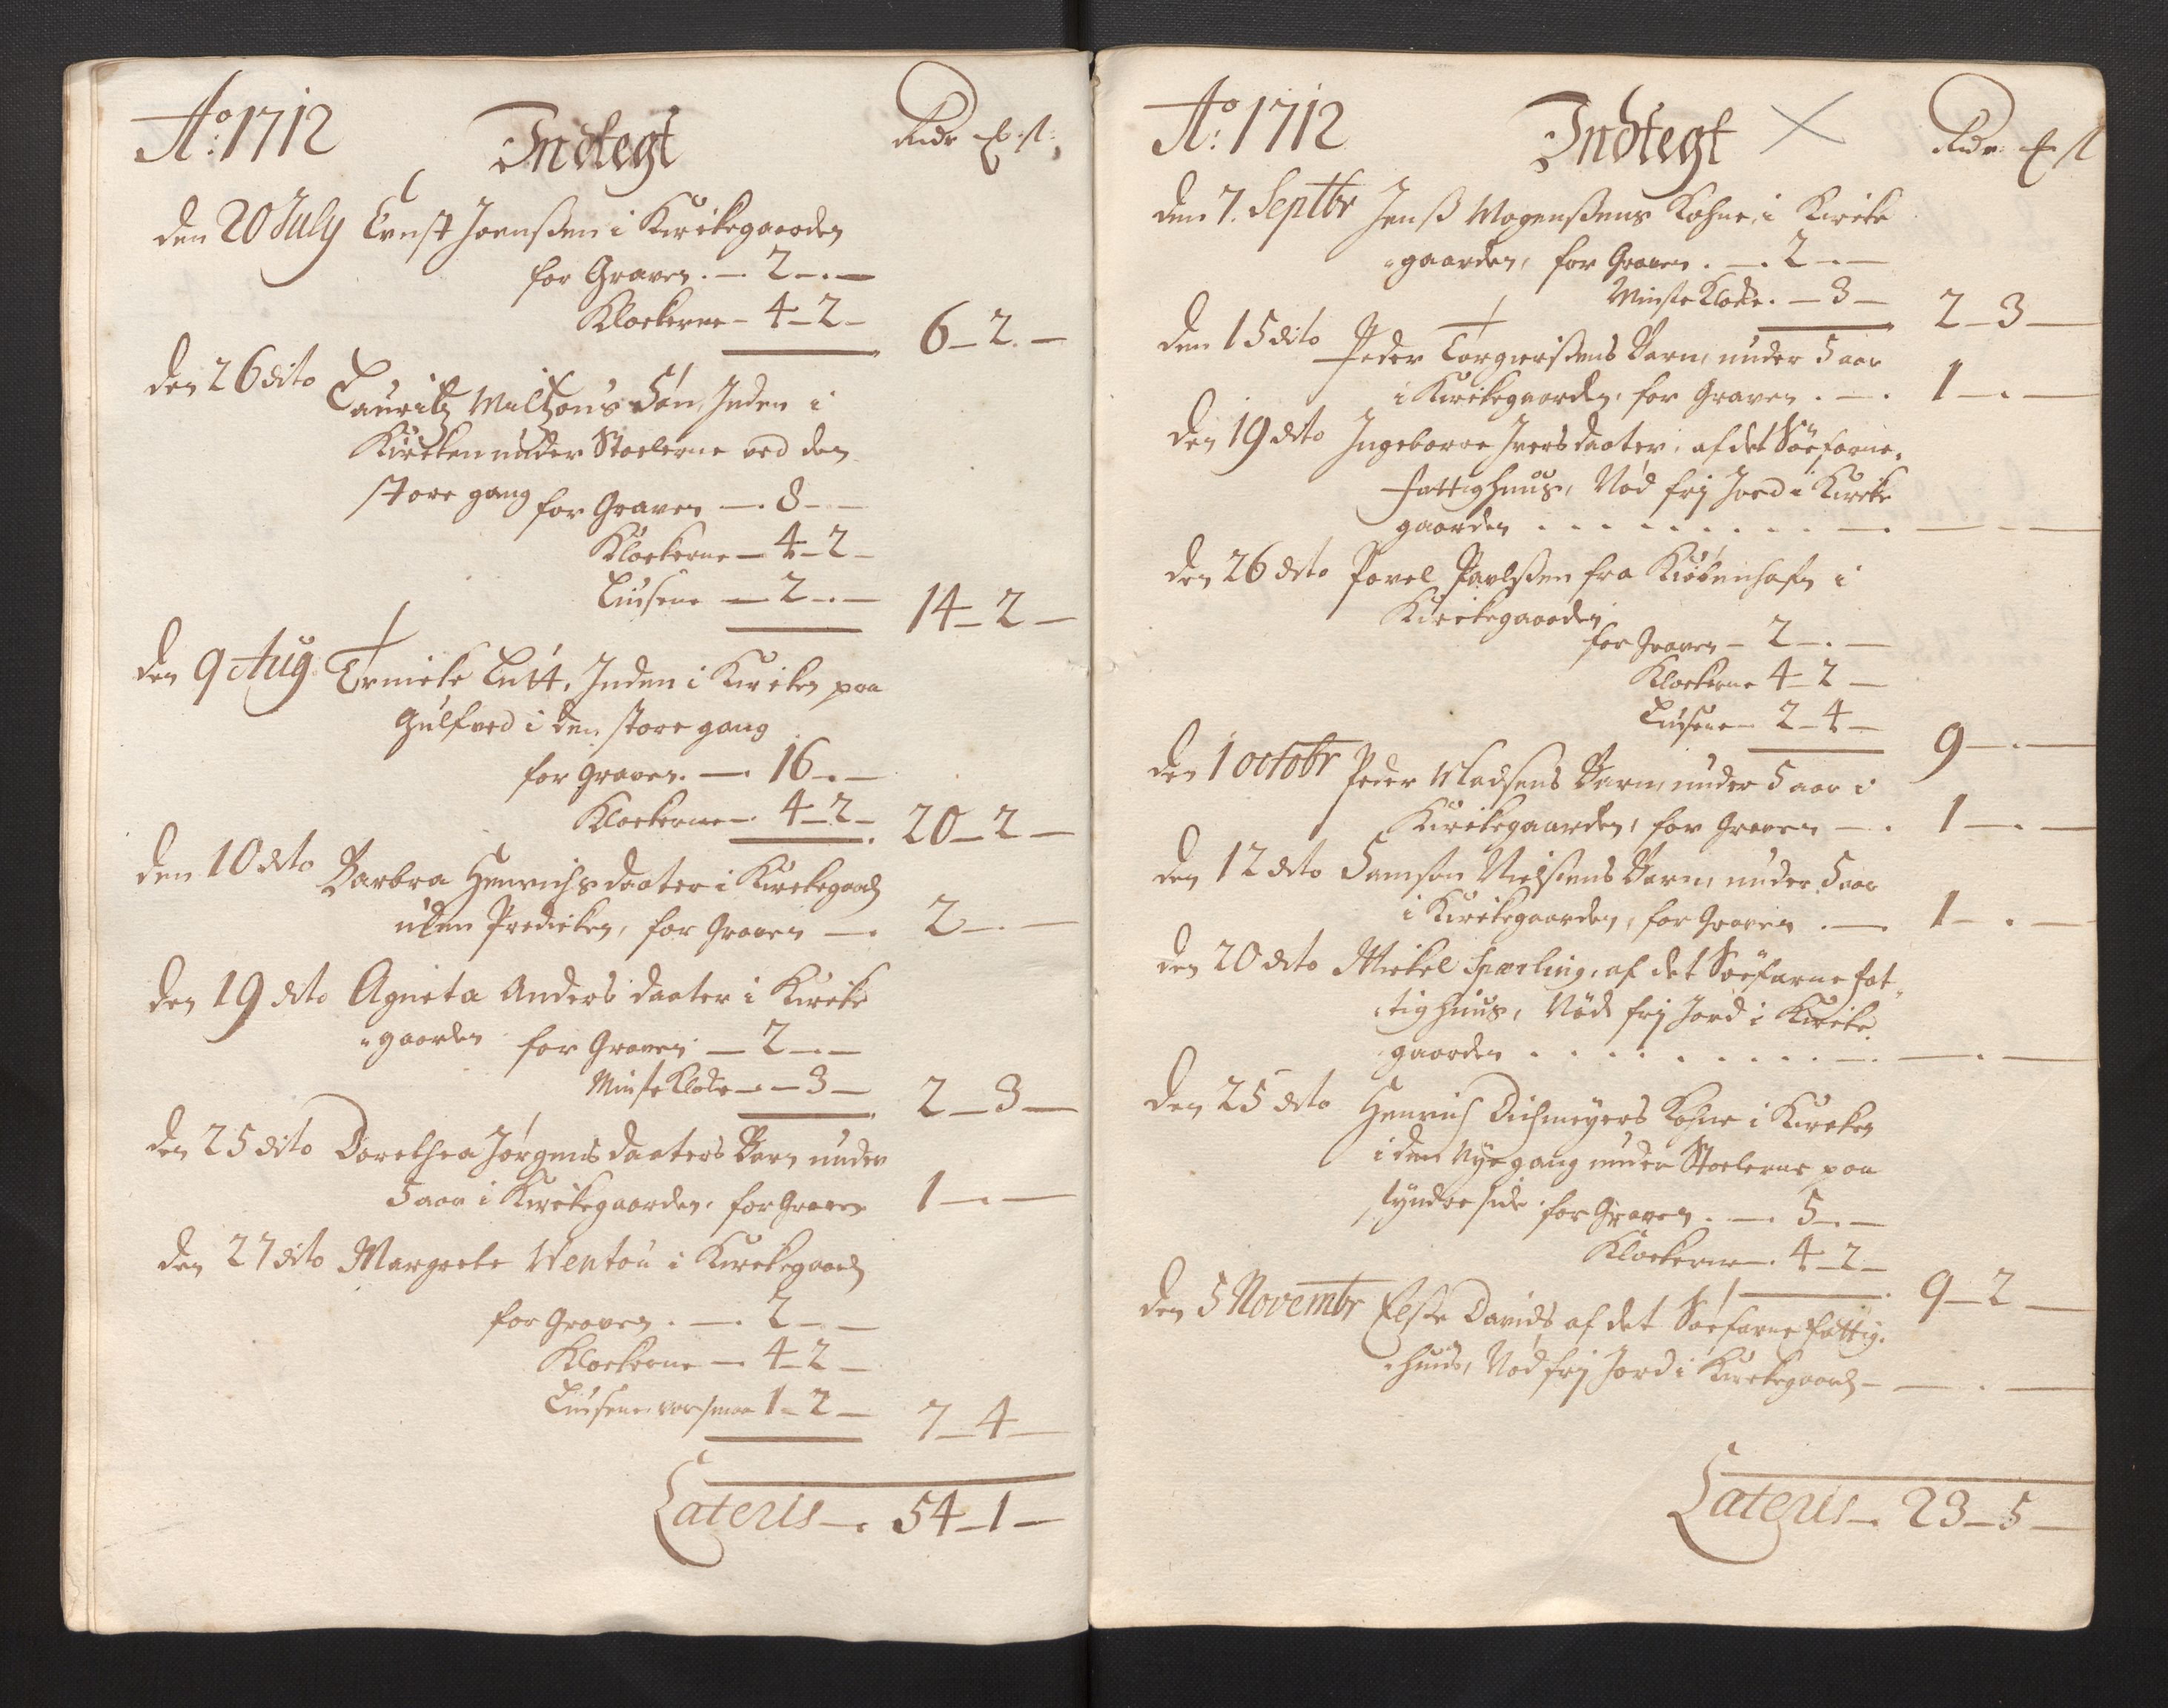 Ao: 1712 Indtegt Rdr ƒ. st:
den 20 July Ernst Joenssen i Kirckegaarden
for Graven . — 2 — . —
Klockerne — 4 — 2 — 6 — 2. —
den 26 dito Lauritz Miltzons Søn, Inden i
Kircken under Stoelerne ved den
store gang for Graven — . 8 — —
Klockerne — 4 — 2 —
Lüsene — 2 — . — 14 — 2 —
den 9 Aug. Ermicke Lutt. Inden i Kircken paa
Gulfved i den store gang
for Graven. — . 16 — . —
Klockerne — . 4 — 2 — 20 — 2 —
den 10 dito Barbra Henrichsdaater i Kirckegaard
uden Predicken, for Graven — . 2 — . —
den 19 dito Agneta Anders daater i Kircke
"gaarden for Graven — 2 — . —
Minste Klocke — . — 3 — 2 — 3 —
den 25 dito Dorethea Jørgens daaters Barn under
5 aar i Kirckegaarden, for Graven 1 — . —
den 27 dito Margrete Wentou i Kirckegaard
for Graven . — . 2 — . —
Klockerne — 4 — 2 —
Lüsene var smaa 1 — 2 — 7 — 4 —
Lateris — . 54 — 1 —
Ao: 1712 Indtegt Rdr: ƒ. st
den 7. Septbr Jenss Mogenssens Kohne, i Kircke
"gaarden, for Graven . — . 2 — . —
Minste Klocke. — 3 — 2 — 3 —
den 15 dito Peder Torgierssens Barn, under 5 aar
i Kirckegaarden, for Graven . — . 1 — . —
den 19 dito Ingeborre Ivers daater, af det Søefarne,
Fattighuus, Nød frj Jord i Kircke
gaarden . . . . . . . . . — . — . —
den 26 dito Povel Pavlssen fra Kiøbenhafn i
Kirckegaarden
for Graven — 2 — . —
Klockerne 4 — 2 —
Lüsene — 2 — 4 — 9 — . —
den 1 octobr Peder Madsens Barn under 5 aar i
Kirckegaarden, for Graven — . 1 — . —
den 12 dito Samson Nielsens Barn, under 5 aar
i Kirckegaarden, for Graven . — 1 — . —
den 20 dito Mickel Sperling, af det Søefarne fat"
"tighuus, Nød frj Jord i Kircke
gaarden . . . . . . . . . — . — . —
den 25 dito Henrich Dichmeyers Kohne i Kircken
i den Nye gang under Stoelerne paa
syndre side for Graven . — . 5 — . —
Klockerne — . 4 — 2 — 9 — 2 —
den 5 Novembr Elsse Davids af det Søefarne fattig"
"huus, Nød frj Jord i Kirckegaard — — . —
Lateris — . 23 — 5 —